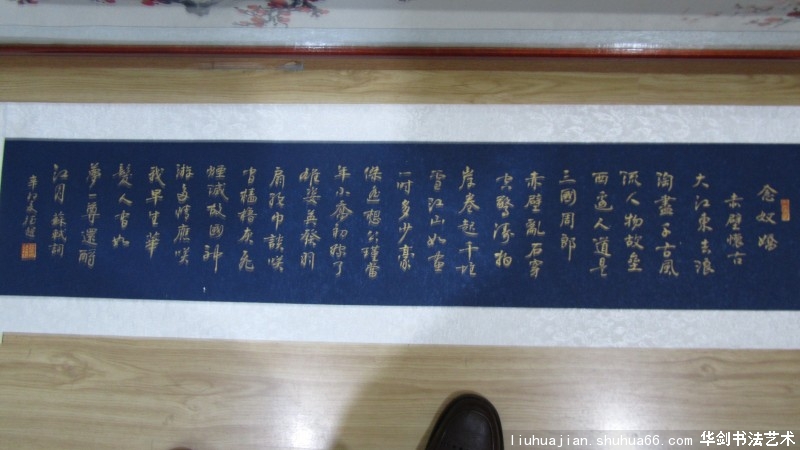 念奴娇
赤壁怀古
大江东去浪
淘盡千古風
流人物故壘
西邊人道是
三國周郎
赤壁亂石穿
空驚濤拍
岸卷起千堆
雪江山如畫
一時多少豪
傑遥想公瑾當
年小喬初嫁了
雄姿英發羽
扇綸巾談笑
間檣櫓灰飛
煙滅故國神
游多情應笑
我早生華
髮人生如
夢一尊還酹
江月 蘇軾詞
liuhuajian.shuhua66.com 华剑书法艺术